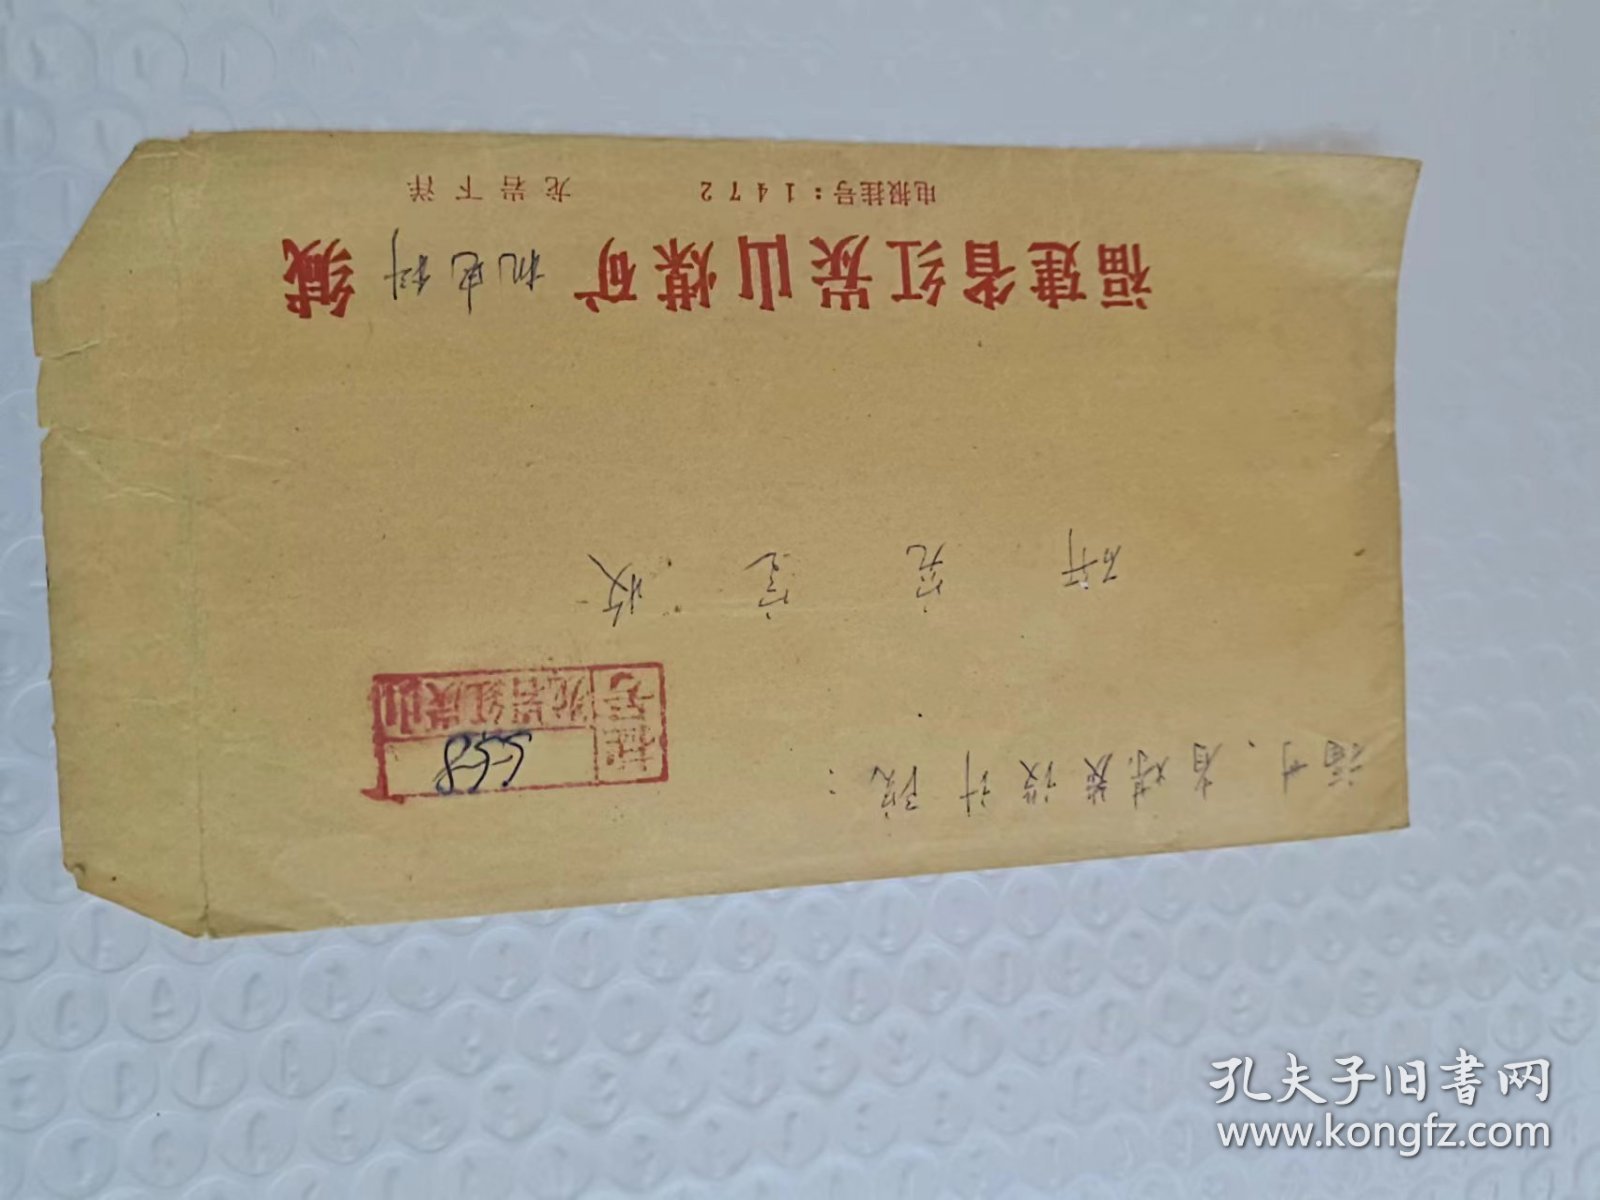 福州、省煤炭设计院：
挂号
558
龙岩红炭山
研究室收
福建省红炭山煤矿机电科缄
电报挂号：1472 龙岩下洋
孔夫子旧书网
www.kongfz.com